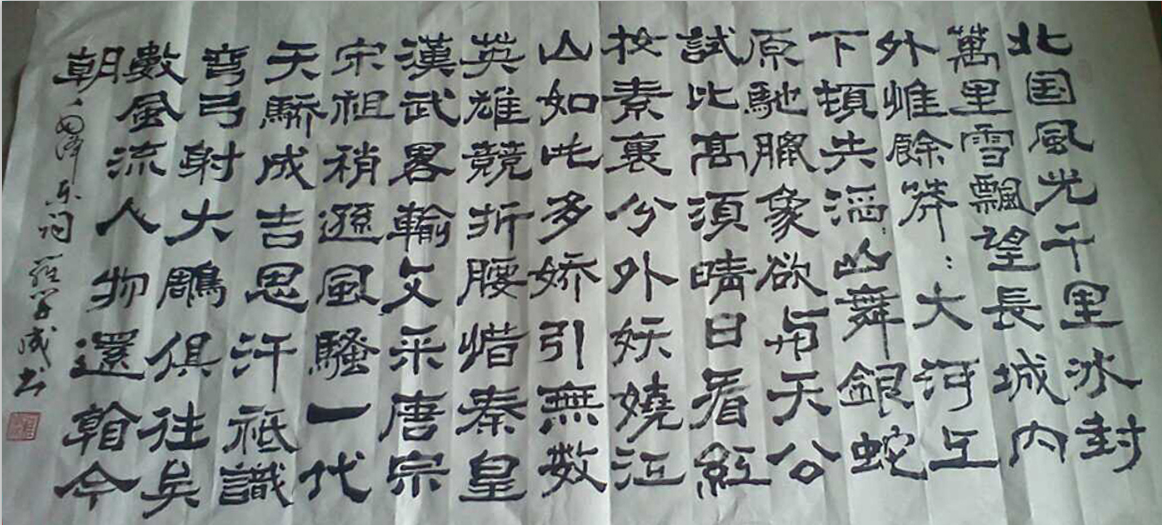 北国風光千里冰封
萬里雪飄望長城内
外惟餘莽：大河上
下頓失滔：山舞銀蛇
原馳臘象欲与天公
試比高須晴日看紅
妝素裹分外妖嬈江
山如此多娇引無数
英雄競折腰惜秦皇
漢武畧輸文采唐宗
宋祖稍遜風騷一代
天驕成吉思汗祗識
彎弓射大鵰俱往矣
數風流人物還看今
朝：毛泽东词 羅学成书